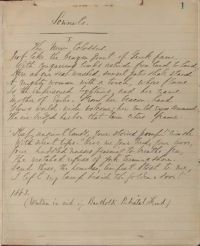 1
Sonnets.
I
The New Colossus.
Not like the brazen giant of Greek fame,
With conquering limbs astride from land to land;
Here at our sea-washed, sunset gates shall stand
A mighty woman with a torch, whose flame
Is the imprisoned lightning, and her name
Mother of Exiles. From her beacon-hand
Glows world-wide welcome; her mild eyes command
The air-bridged harbor that twin cities frame.
"Keep, ancient lands, your storied pomp!" cries she
With silent lips. "Give me your tired, your poor,
Your huddled masses yearning to breathe free,
The wretched refuse of your teeming shore.
Send these, the homeless, tempest-tost to me,
I lift my lamp beside the golden door!"
1883.
(Written in aid of Bartholdi Pedestal Fund)